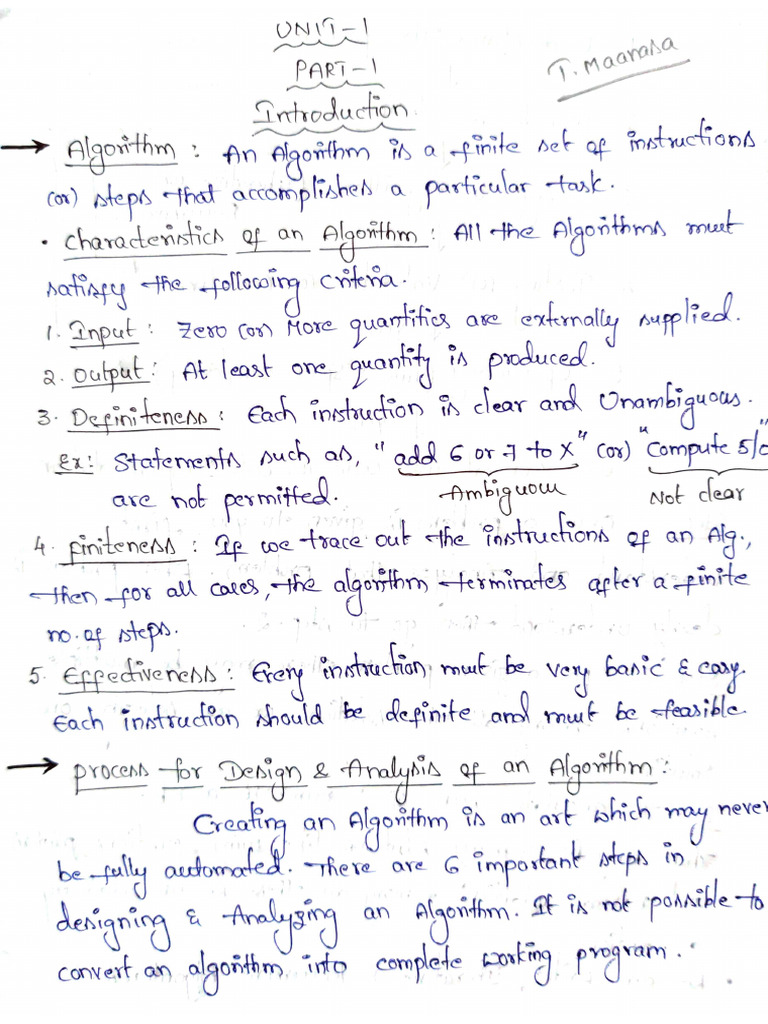 UNIT-1
PART-1
T. Maanasa
Introduction
→ Algorithm : An Algorithm is a finite set of instructions
(or) steps that accomplishes a particular task.
• Characteristics of an Algorithm : All the Algorithms must
satisfy the following criteria.
1. Input : Zero (or) More quantities are externally supplied.
2. Output : At least one quantity is produced.
3. Definiteness : Each instruction is clear and Unambiguous.
Ex: Statements such as, "add 6 or 7 to X" (or) "compute 5/0"
are not permitted. Ambiguous Not clear
4. Finiteness : If we trace out the instructions of an Alg.,
then for all cases, the algorithm terminates after a finite
no. of steps.
5. Effectiveness : Every instruction must be very basic & easy.
Each instruction should be definite and must be feasible.
→ Process for Design & Analysis of an Algorithm :
Creating an Algorithm is an art which may never
be fully automated. There are 6 important steps in
designing & Analyzing an Algorithm. It is not possible to
convert an algorithm into complete working program.